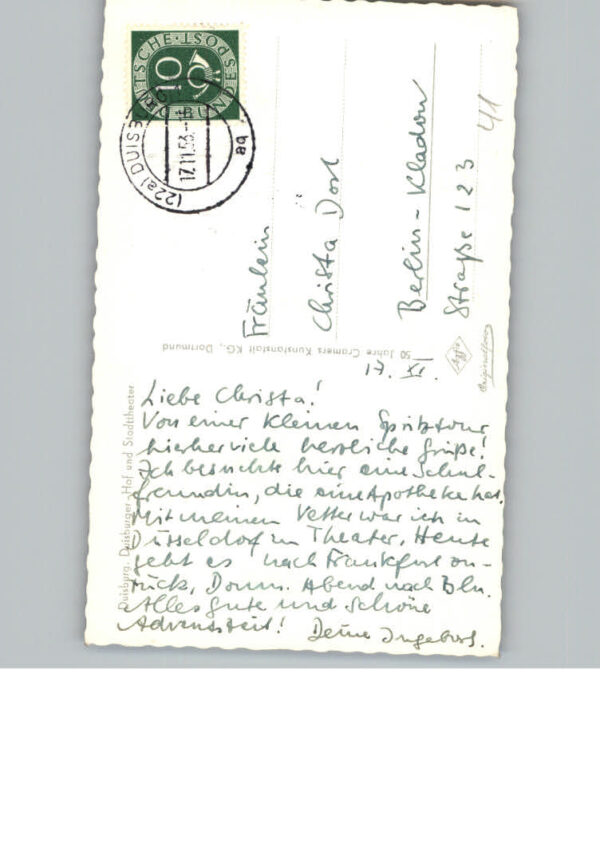 DEUTSCHE · BUNDESPOST
10
(22a) DUISBURG
17.11.53.-18
aq
Fräulein
Christa Dost
Berlin-Kladow
Straße 123
41
50 Jahre Cramers Kunstanstalt KG., Dortmund
Agfa
Originalfoto
Duisburg. Duisburger Hof und Stadttheater
17. XI.
Liebe Christa!
Von einer kleinen Spritztour
hierher viele herzliche Grüße!
Ich besuchte hier eine Schul-
freundin, die eine Apotheke hat.
Mit meinem Vetter war ich in
Düsseldorf im Theater. Heute
geht es nach Frankfurt zu-
rück, Donn. Abend nach Bln.
Alles gute und schöne
Adventszeit! Deine Ingeborg.